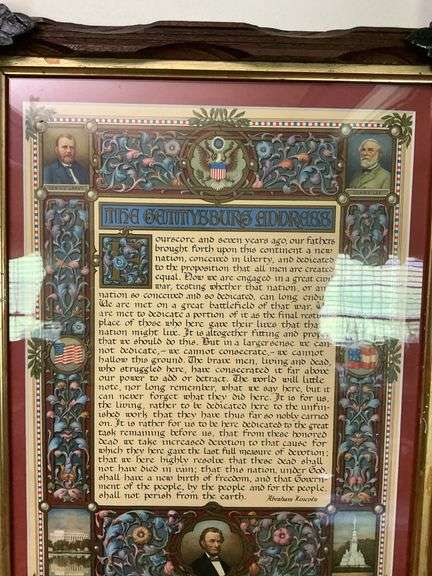 THE GETTYSBURG ADDRESS
Fourscore and seven years ago our fathers
brought forth upon this continent a new
nation, conceived in liberty, and dedicated
to the proposition that all men are created
equal. Now we are engaged in a great civil
war, testing whether that nation, or any
nation so conceived and so dedicated, can long endure.
We are met on a great battlefield of that war. We
are met to dedicate a portion of it as the final resting
place of those who here gave their lives that that
nation might live. It is altogether fitting and proper
that we should do this. But in a larger sense we can
not dedicate,–we cannot consecrate,–we cannot
hallow this ground. The brave men, living and dead,
who struggled here, have consecrated it far above
our power to add or detract. The world will little
note, nor long remember, what we say here, but it
can never forget what they did here. It is for us,
the living, rather to be dedicated here to the unfin-
ished work that they have thus far so nobly carried
on. It is rather for us to be here dedicated to the great
task remaining before us, that from these honored
dead we take increased devotion to that cause for
which they here gave the last full measure of devotion;
that we here highly resolve that these dead shall
not have died in vain; that this nation, under God
shall have a new birth of freedom, and that Govern-
ment of the people, by the people and for the people,
shall not perish from the earth.
Abraham Lincoln